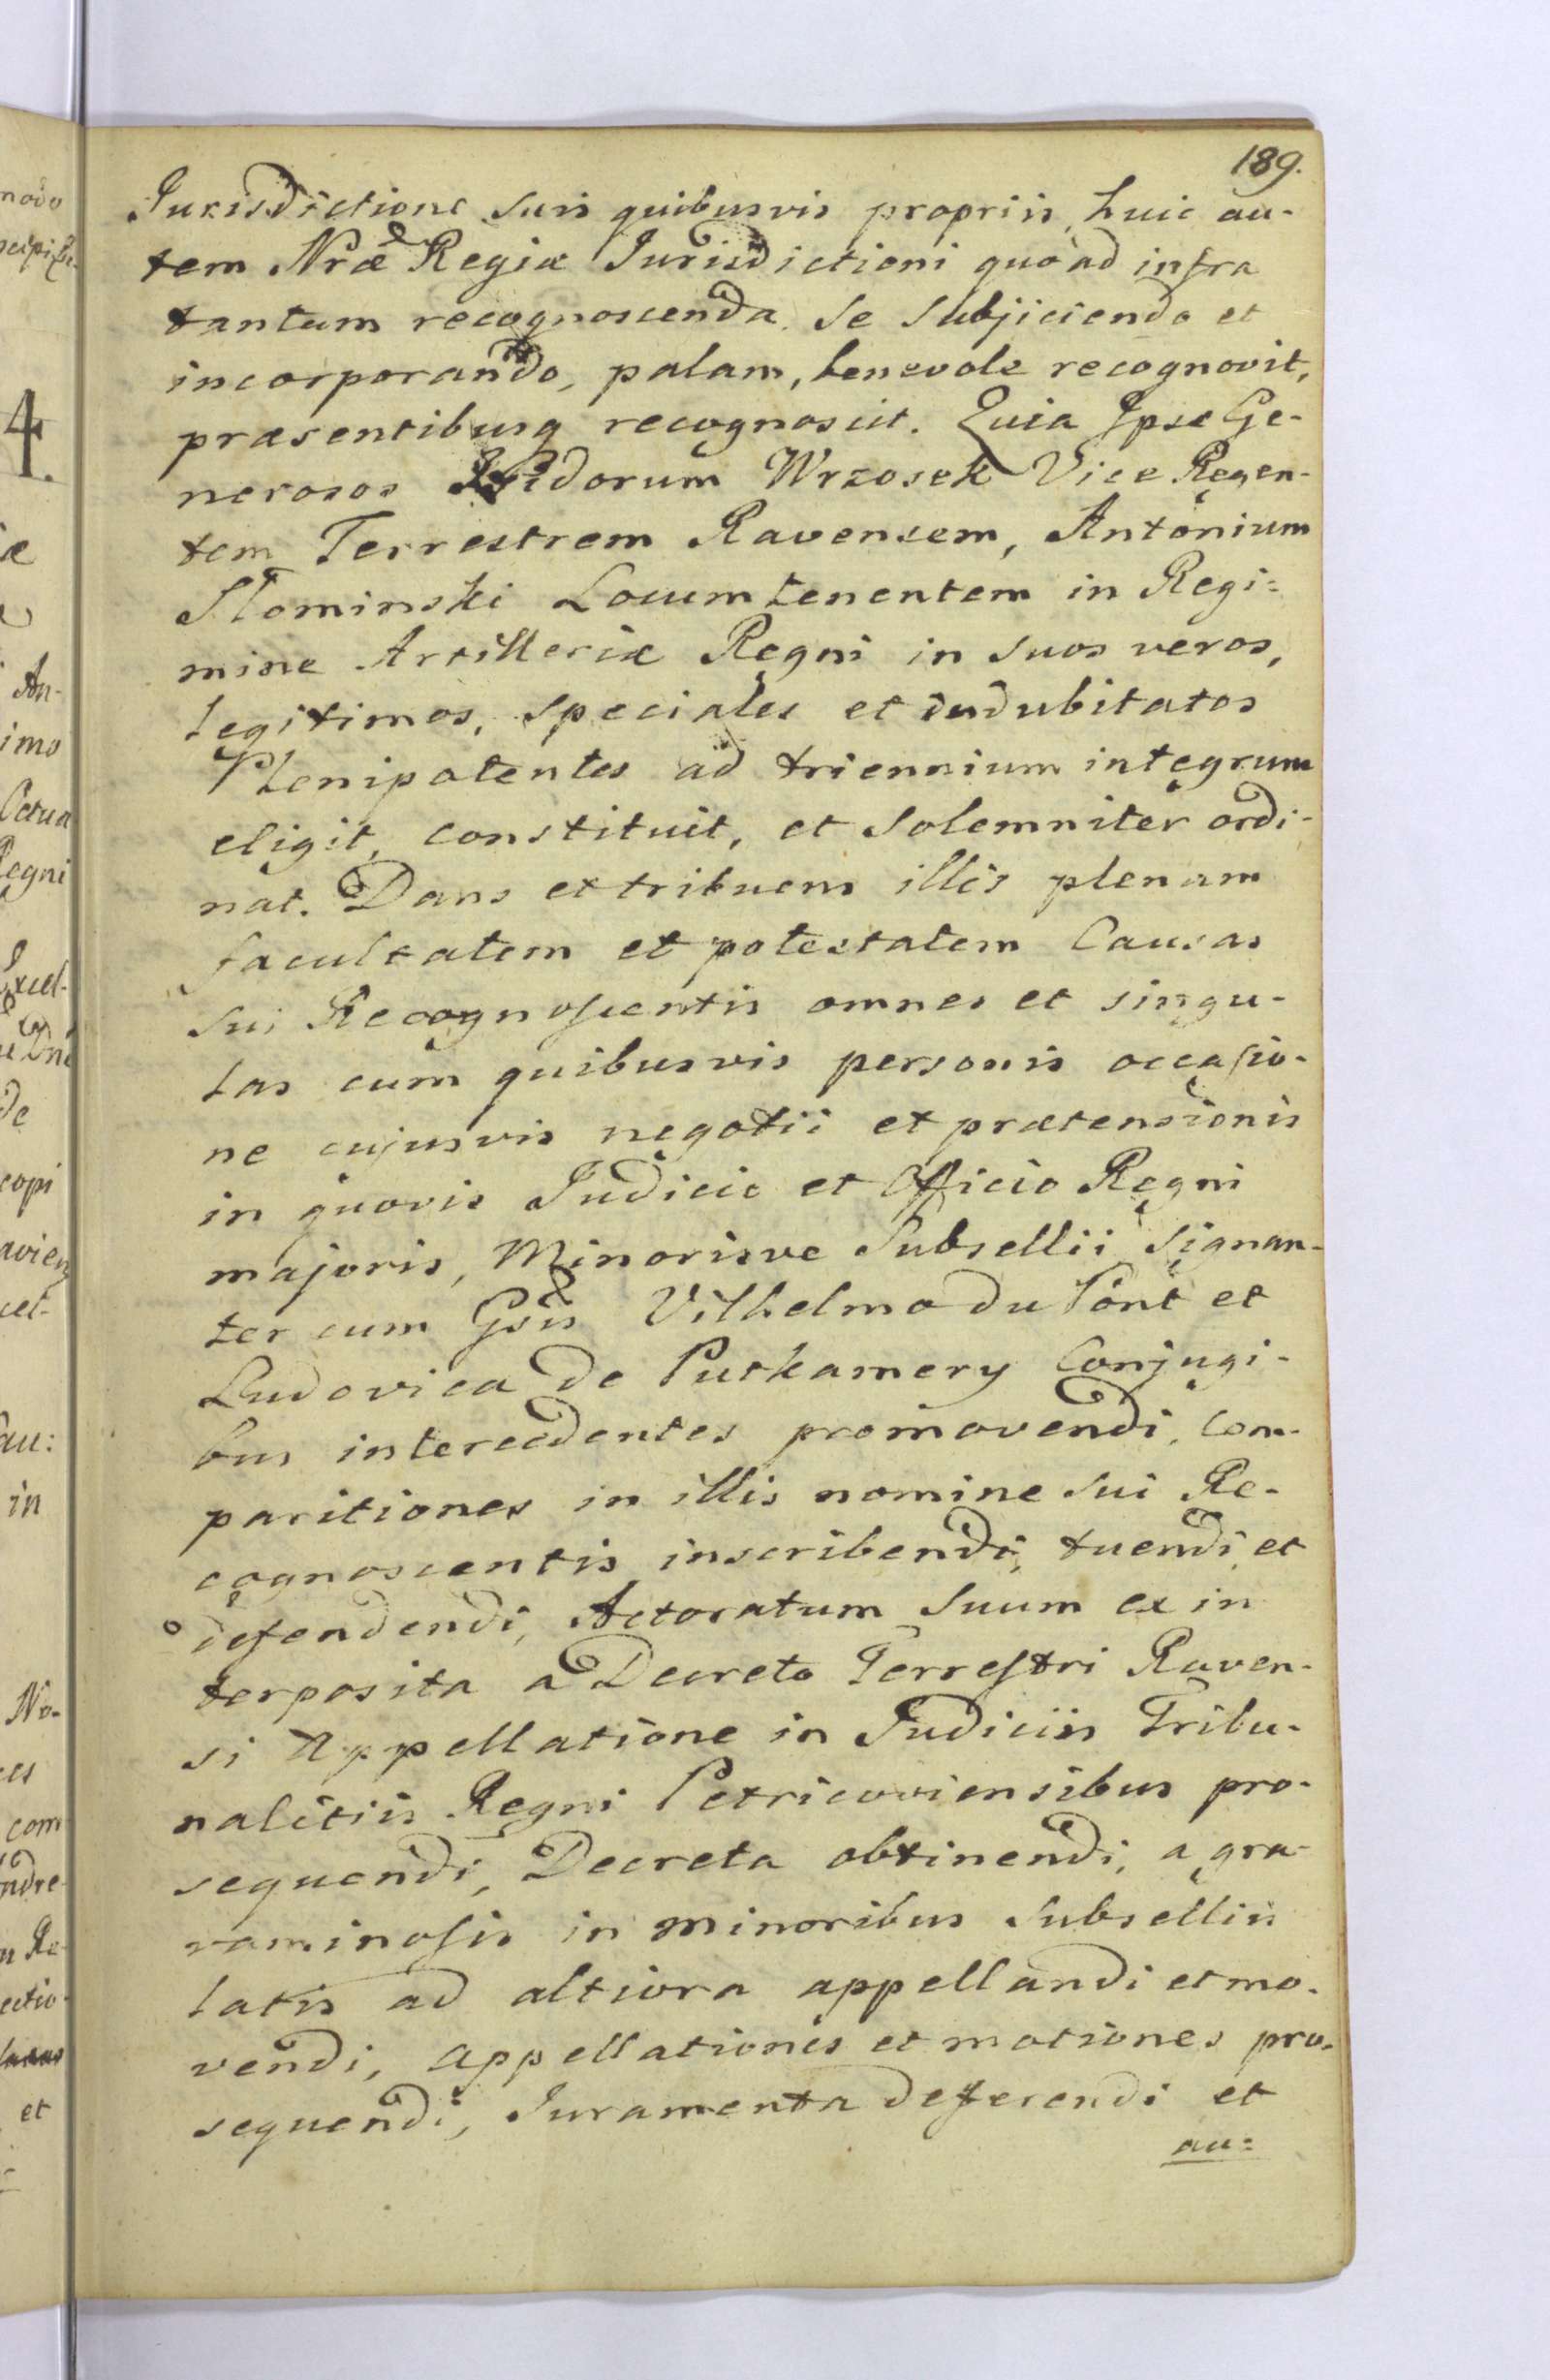 189.
Jurisdictione suis quibusvis propriis, huic au-
tem Nræ Regiæ Jurisdictioni quoad infra
tantum recognoscenda se subjiciendo et
incorporando, palam, benevole recognovit,
præsentibusq recognoscit. Quia Ipse Ge-
nerosos Isidorum Wrzosek Vice Regen-
tem Terrestrem Ravensem, Antonium
Słominski Locumtenentem in Regi=
mine Artilleriæ Regni in suos veros,
legitimos, speciales et indubitatos
Plenipotentes ad triennium integrum
eligit, constituit, et solemniter ordi-
nat. Dans et tribuens illis plenam
facultatem et potestatem Causas
sui Recognoscentis omnes et singu-
las cum quibusvis personis occasio-
ne cujusvis negotii et prætensionis
in quovis Judicio et Officio Regni
majoris, Minorisve Subsellii signan-
ter cum Gsis Vilhelmo du Pont et
Ludovica de Putkamery Conjugi-
bus intercedentes promovendi, Com-
paritiones in illis nomine sui Re-
cognoscentis inscribendi, tuendi et
defendendi, Actoratum suum ex in
terposita a Decreto Terrestri Raven-
si Appellatione in Judiciis Tribu-
nalitiis Regni Petricoviensibus pro-
sequendi, Decreta obtinendi, a gra-
vaminosis in minoribus Subselliis
latis ad altiora appellandi et mo-
vendi, appellationes et motiones pro-
sequendi, Juramenta deferendi et
au=
4.
modo
æ
An-
imo
Regni
Excel-
de
copi
cel-
au:
in
No-
com
n Re-
et